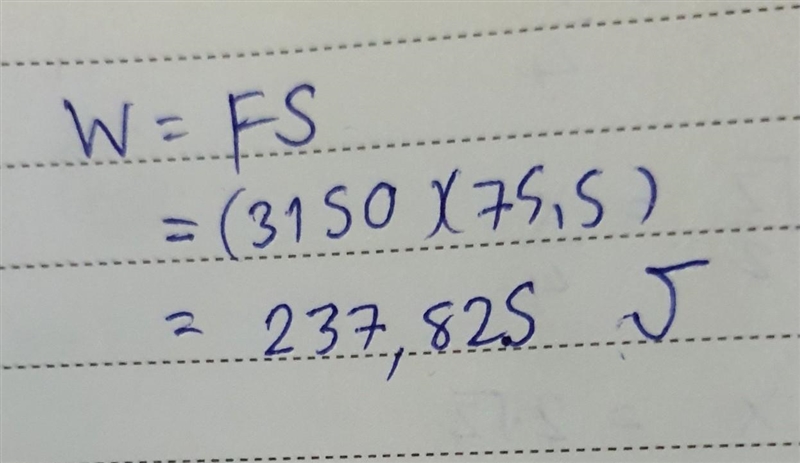 W = FS
= (3150)(75,5)
= 237,825 J